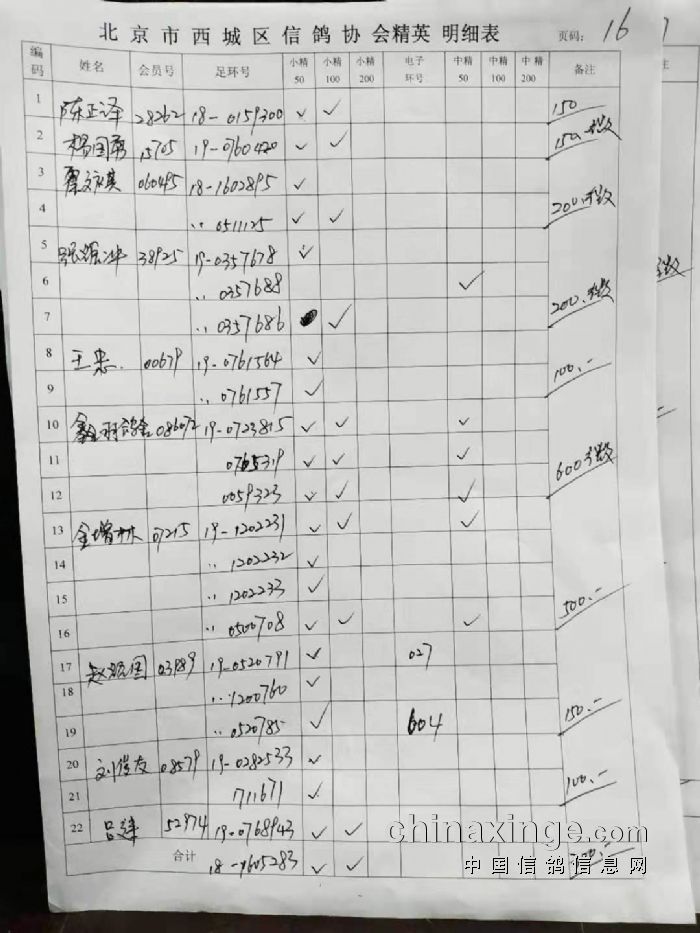 北京市西城区信鸽协会精英明细表 页码: 16
编码 姓名 会员号 足环号 小精50 小精100 小精200 电子环号 中精50 中精100 中精200 备注
1 陈正泽 28262 18-0159300 ✓ ✓ 150
2 杨国勇 15705 19-0760420 ✓ ✓ 150
3 060495 18-1602895 ✓
4 〃 0511125 ✓ ✓ 200
5 38925 19-0357678 ✓
6 〃 0357688 ✓
7 〃 0357686 ✓ 200
8 王忠 00679 19-0761564 ✓
9 〃 0761557 ✓ 100.-
10 086072 19-0723815 ✓ ✓ ✓
11 0765319 ✓ ✓ ✓
12 0059323 ✓ ✓ ✓ 600
13 金增林 07215 19-1202231 ✓ ✓ ✓
14 〃 1202232 ✓
15 〃 1202233 ✓
16 〃 0500708 ✓ ✓ ✓ 500.-
17 03989 19-0520791 ✓ 027
18 〃 1200760 ✓
19 〃 0520785 ✓ 604 150.-
20 刘俊友 08579 19-0282533 ✓
21 711671 ✓ 100.-
22 吕建 52974 19-0768943 ✓ ✓
合计 18-1605283 ✓ ✓
chinaxinge.com
中国信鸽信息网